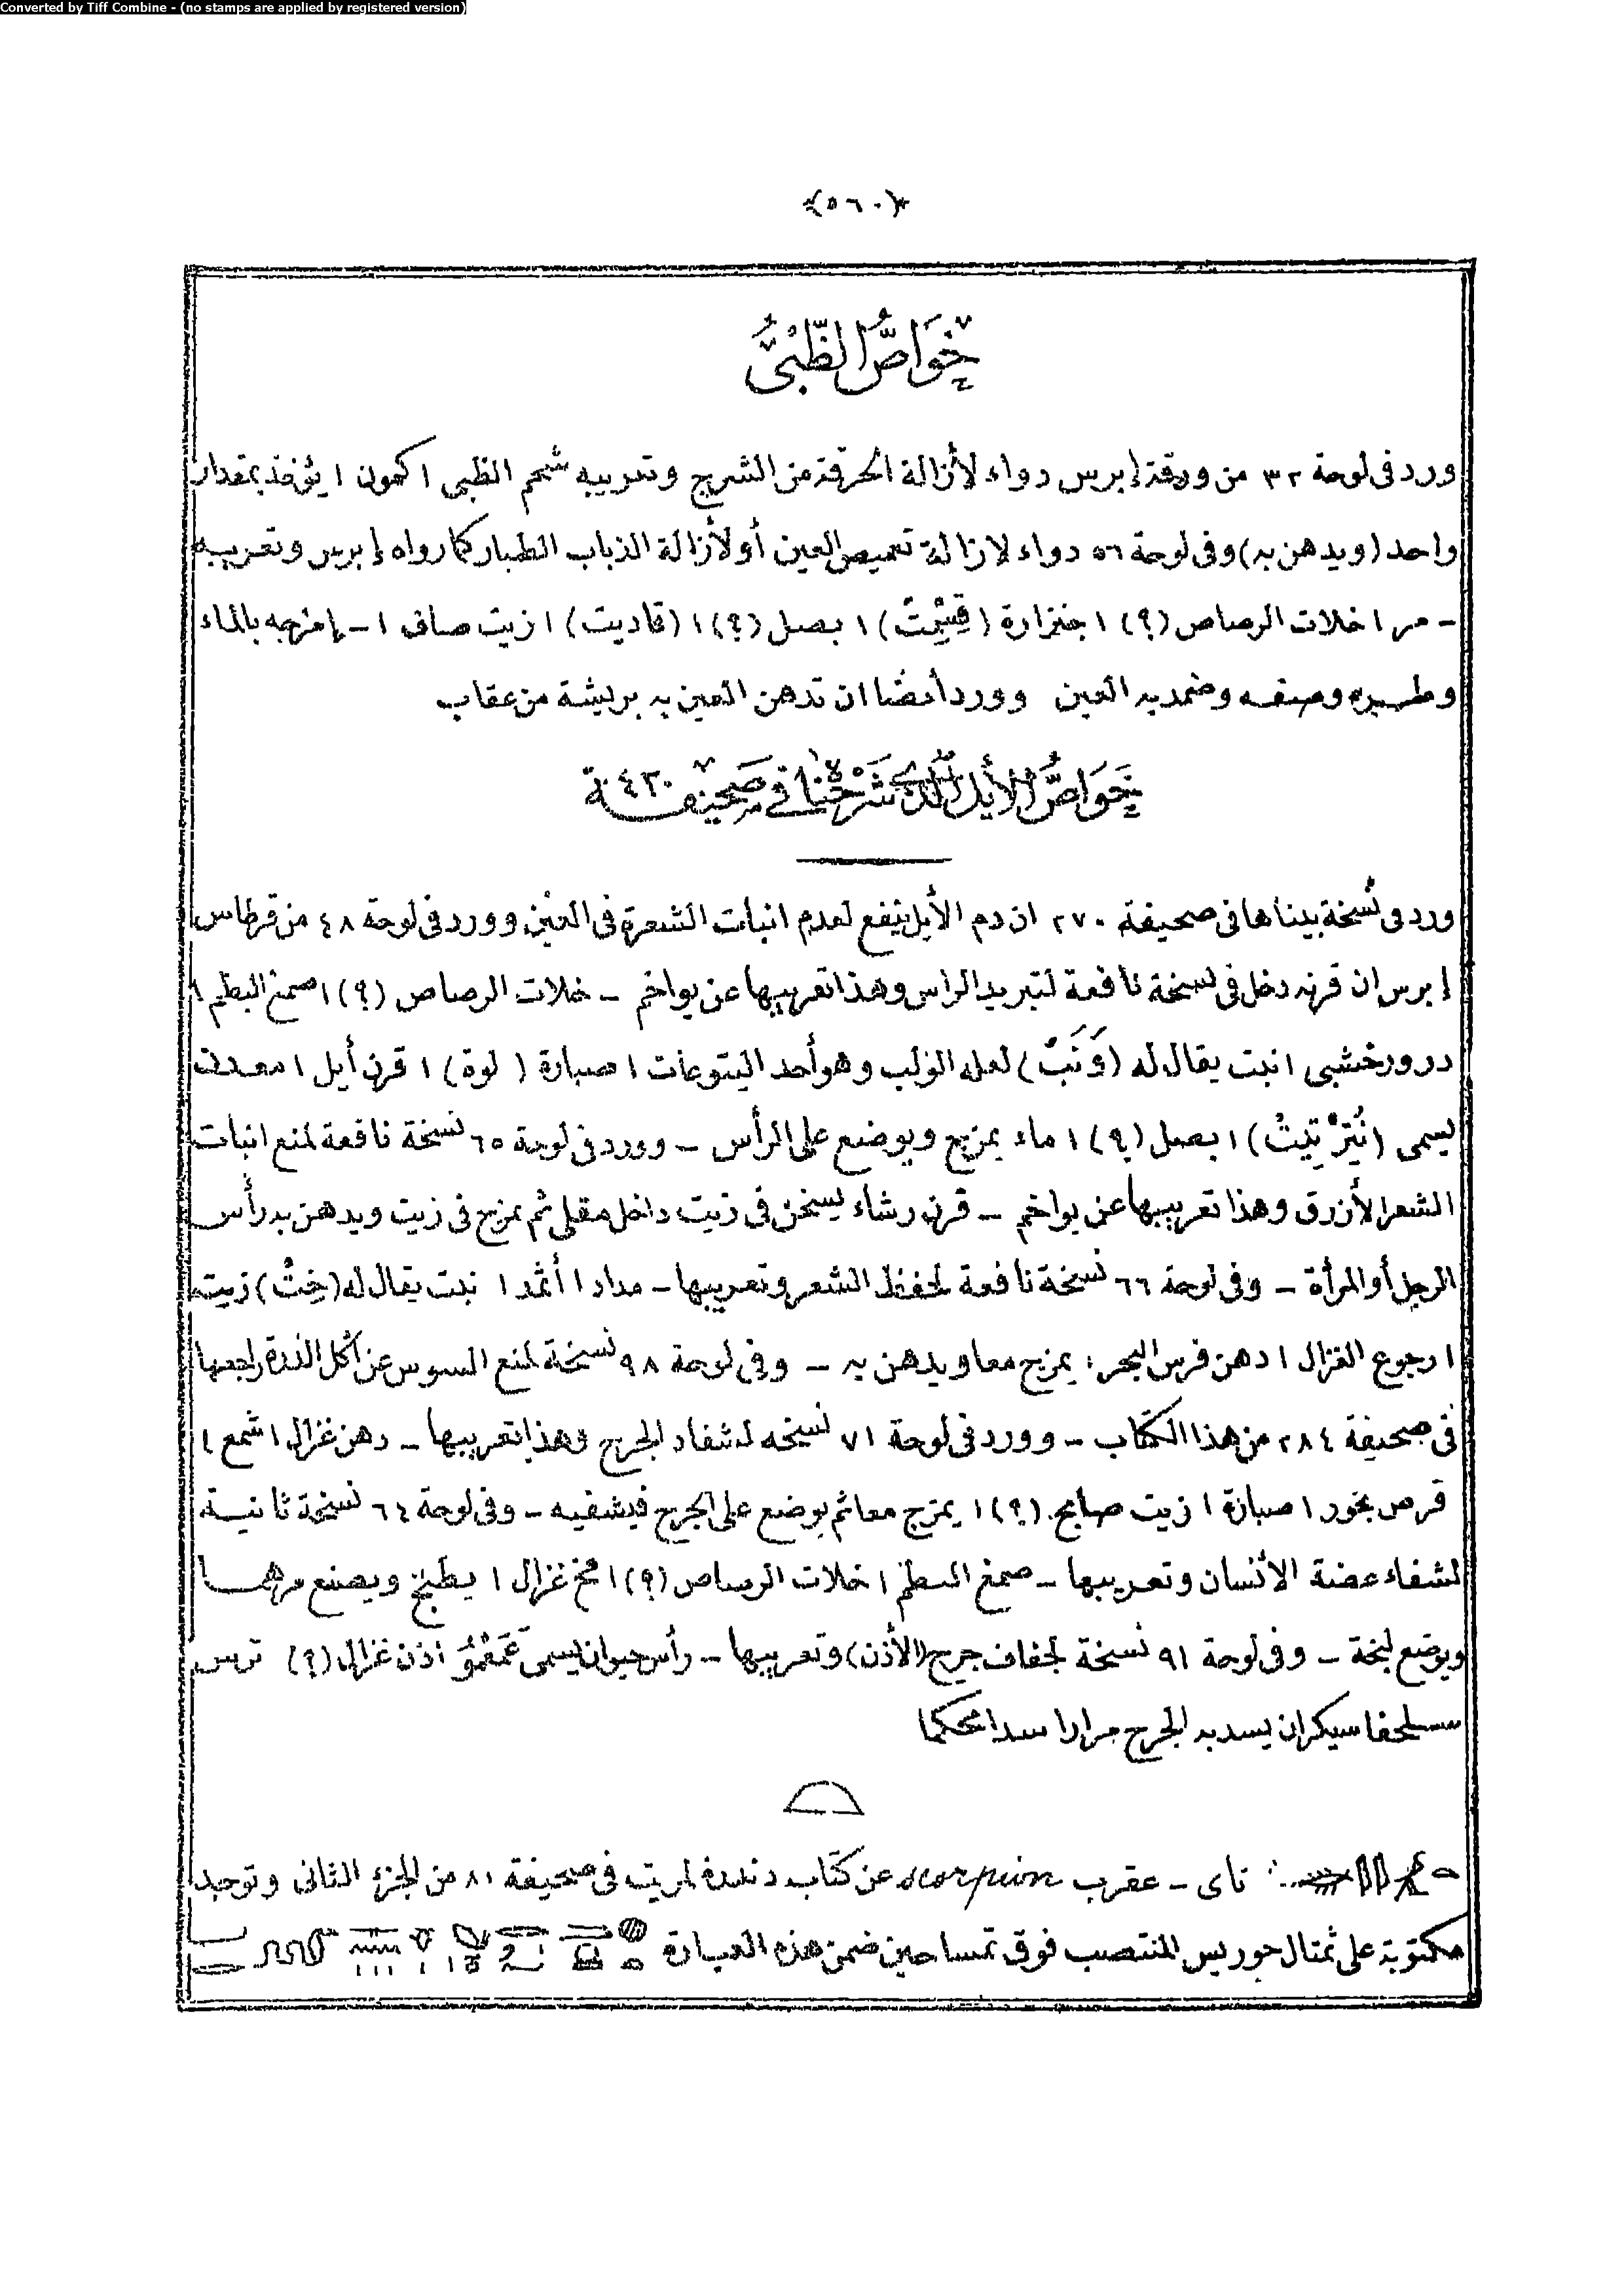 Converted by Tiff Combine - (no stamps are applied by registered version)
﴿٥٦٠﴾
خَوَاصُّ الظَّبْيُ
ورد فى لوحة ٣٢ من ورقة إبرس دواء لأزالة الحرقة من الشرج وتعريبه شحم الظبى ١ كمون ١ يؤخذ بمقدار
واحد (ويدهن به) وفى لوحة ٥٦ دواء لازالة تعميص العين أو لأزالة الذباب الطيار كما رواه إبرس وتعريبه
- مر ١ خلات الرصاص (؟) ١ جنزارة (قسِمت) ١ بصل (؟) ١ (قاديت) ١ زيت صاف ١ - إمزجه بالماء
و وصفه وضمد به العين وورد أيضا ان تدهن العين به بريشة من عقاب
خَوَاصُّ الأيل الذى شَرَحْنَاه فى صَحيفة ٤٣٠
ورد فى نسخة بيناها فى صحيفة ٢٧٠ ان دم الأيل ينفع لعدم انبات الشعرة فى العين وورد فى لوحة ٤٨ من قرطاس
إبرس ان قرنه دخل فى نسخة نافعة لتبريد الراس وهذا تعريبها عن يواخم - خلات الرصاص (؟) ١ صمغ البطم ١
در ورخشبى ١ نبت يقال له (وَنَبْ) لعله الولب وهو أحد اليتوعات ١ صبارة (لوة) ١ قرن أيل ١ معدن
يسمى ( ) ١ بصل (؟) ١ ماء يمزج ويوضع على الرأس - وورد فى لوحة ٦٥ نسخة نافعة لمنع انبات
الشعر الأزرق وهذا تعريبها عن يواخم - قرن رشاء يسخن فى زيت داخل مقلى ثم يمزج فى زيت ويدهن به رأس
الرجل أو المرأة - وفى لوحة ٦٦ نسخة نافعة لحفظ الشعر وتعريبها - مداد ١ أثمد ١ نبت يقال له (خِتْ) زيت
١ رجوع الغزال ١ دهن فرس البحر ١ يمزج معا ويدهن به - وفى لوحة ٩٨ نسخة لمنع السوس عن اكل الذرة راجعها
فى صحيفة ٢٨٤ من هذا الكتاب - وورد فى لوحة ٧١ نسخه لشفاء الجرح وهذا تعريبها - دهن غزال ١ شمع ١
قرص بخور ١ صبارة ١ زيت صابح (؟) ١ يمزج معا ثم يوضع على الجرح فيشفيه - وفى لوحة ٦٤ نسخة ثانية
لشفاء عضة الأنسان وتعريبها - صمغ البطم ١ خلات الرصاص (؟) ١ مخ غزال ١ يطبخ ويصنع مرهما
ويوضع لبخة - وفى لوحة ٩١ نسخة لجفاف جرح (الأذن) وتعريبها - رأس حيوان يسمى عَمَعْمُو اذن غزال (؟) ترس
سلحفا سيكران يسد به الجرح مرارا سدا محكما
تاى - عقرب scorpion عن كتاب دندرة لمريت فى صحيفة ٨١ من الجزء الثانى وتوجد
مكتوبة على تمثال حوريس المنتصب فوق تمساحين ضمن هذه العبارة